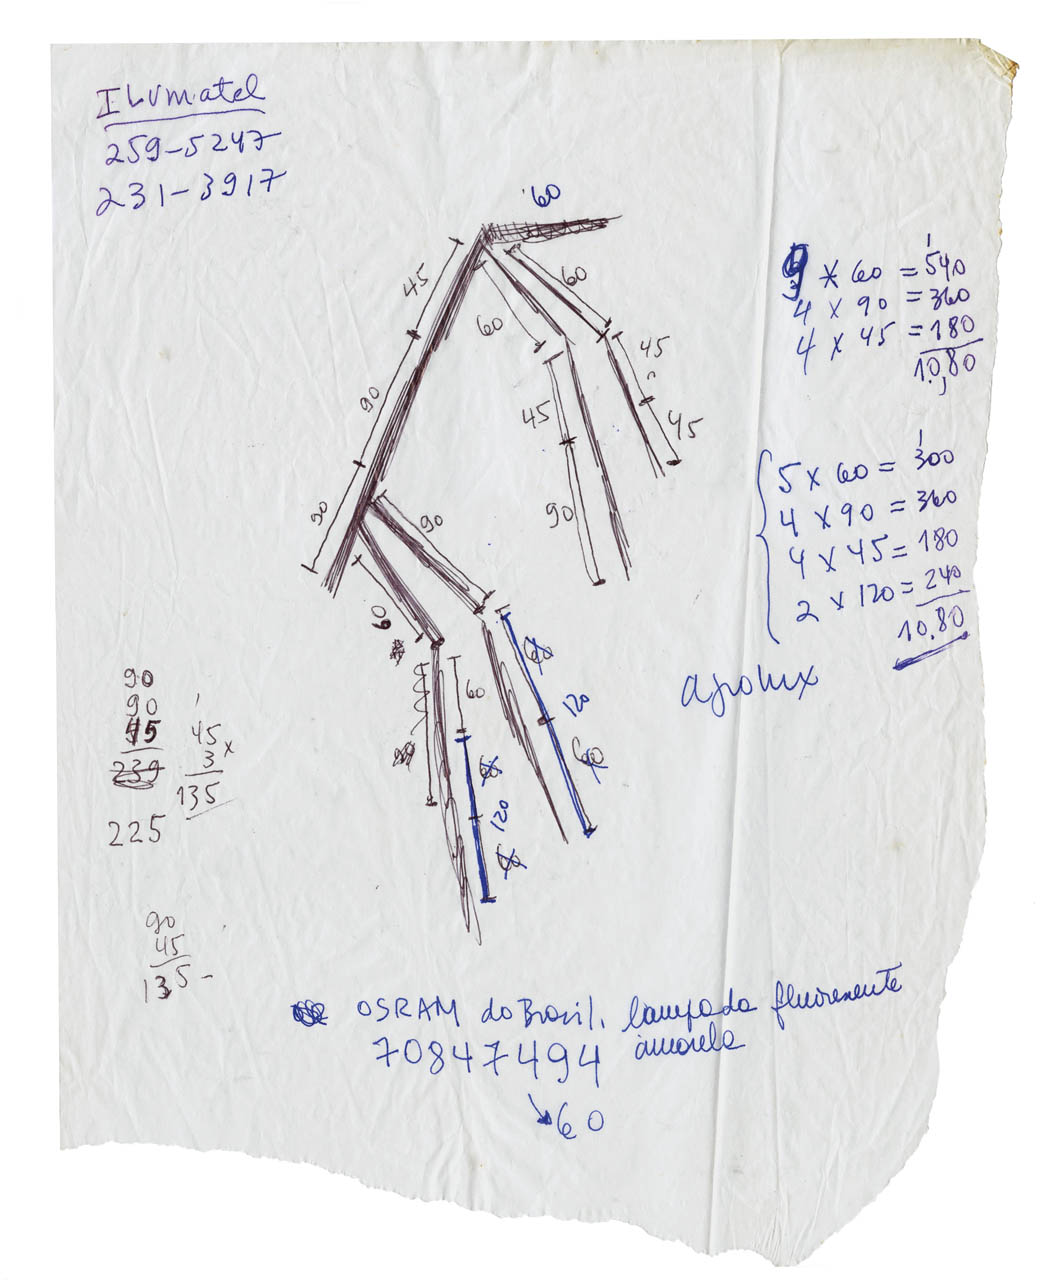 ILUMATEL
259-5247
231-3917
60
45
60
60
90
45
45
45
90
90
90
60
60
120
60
60
60
120
60
9 * 60 = 540
4 x 90 = 360
4 x 45 = 180
10,80
5 x 60 = 300
4 x 90 = 360
4 x 45 = 180
2 x 120 = 240
10.80
90
90
45
239
225
45
3 x
135
90
45
135
OSRAM do Brasil. lampada
amarela
70847494
60